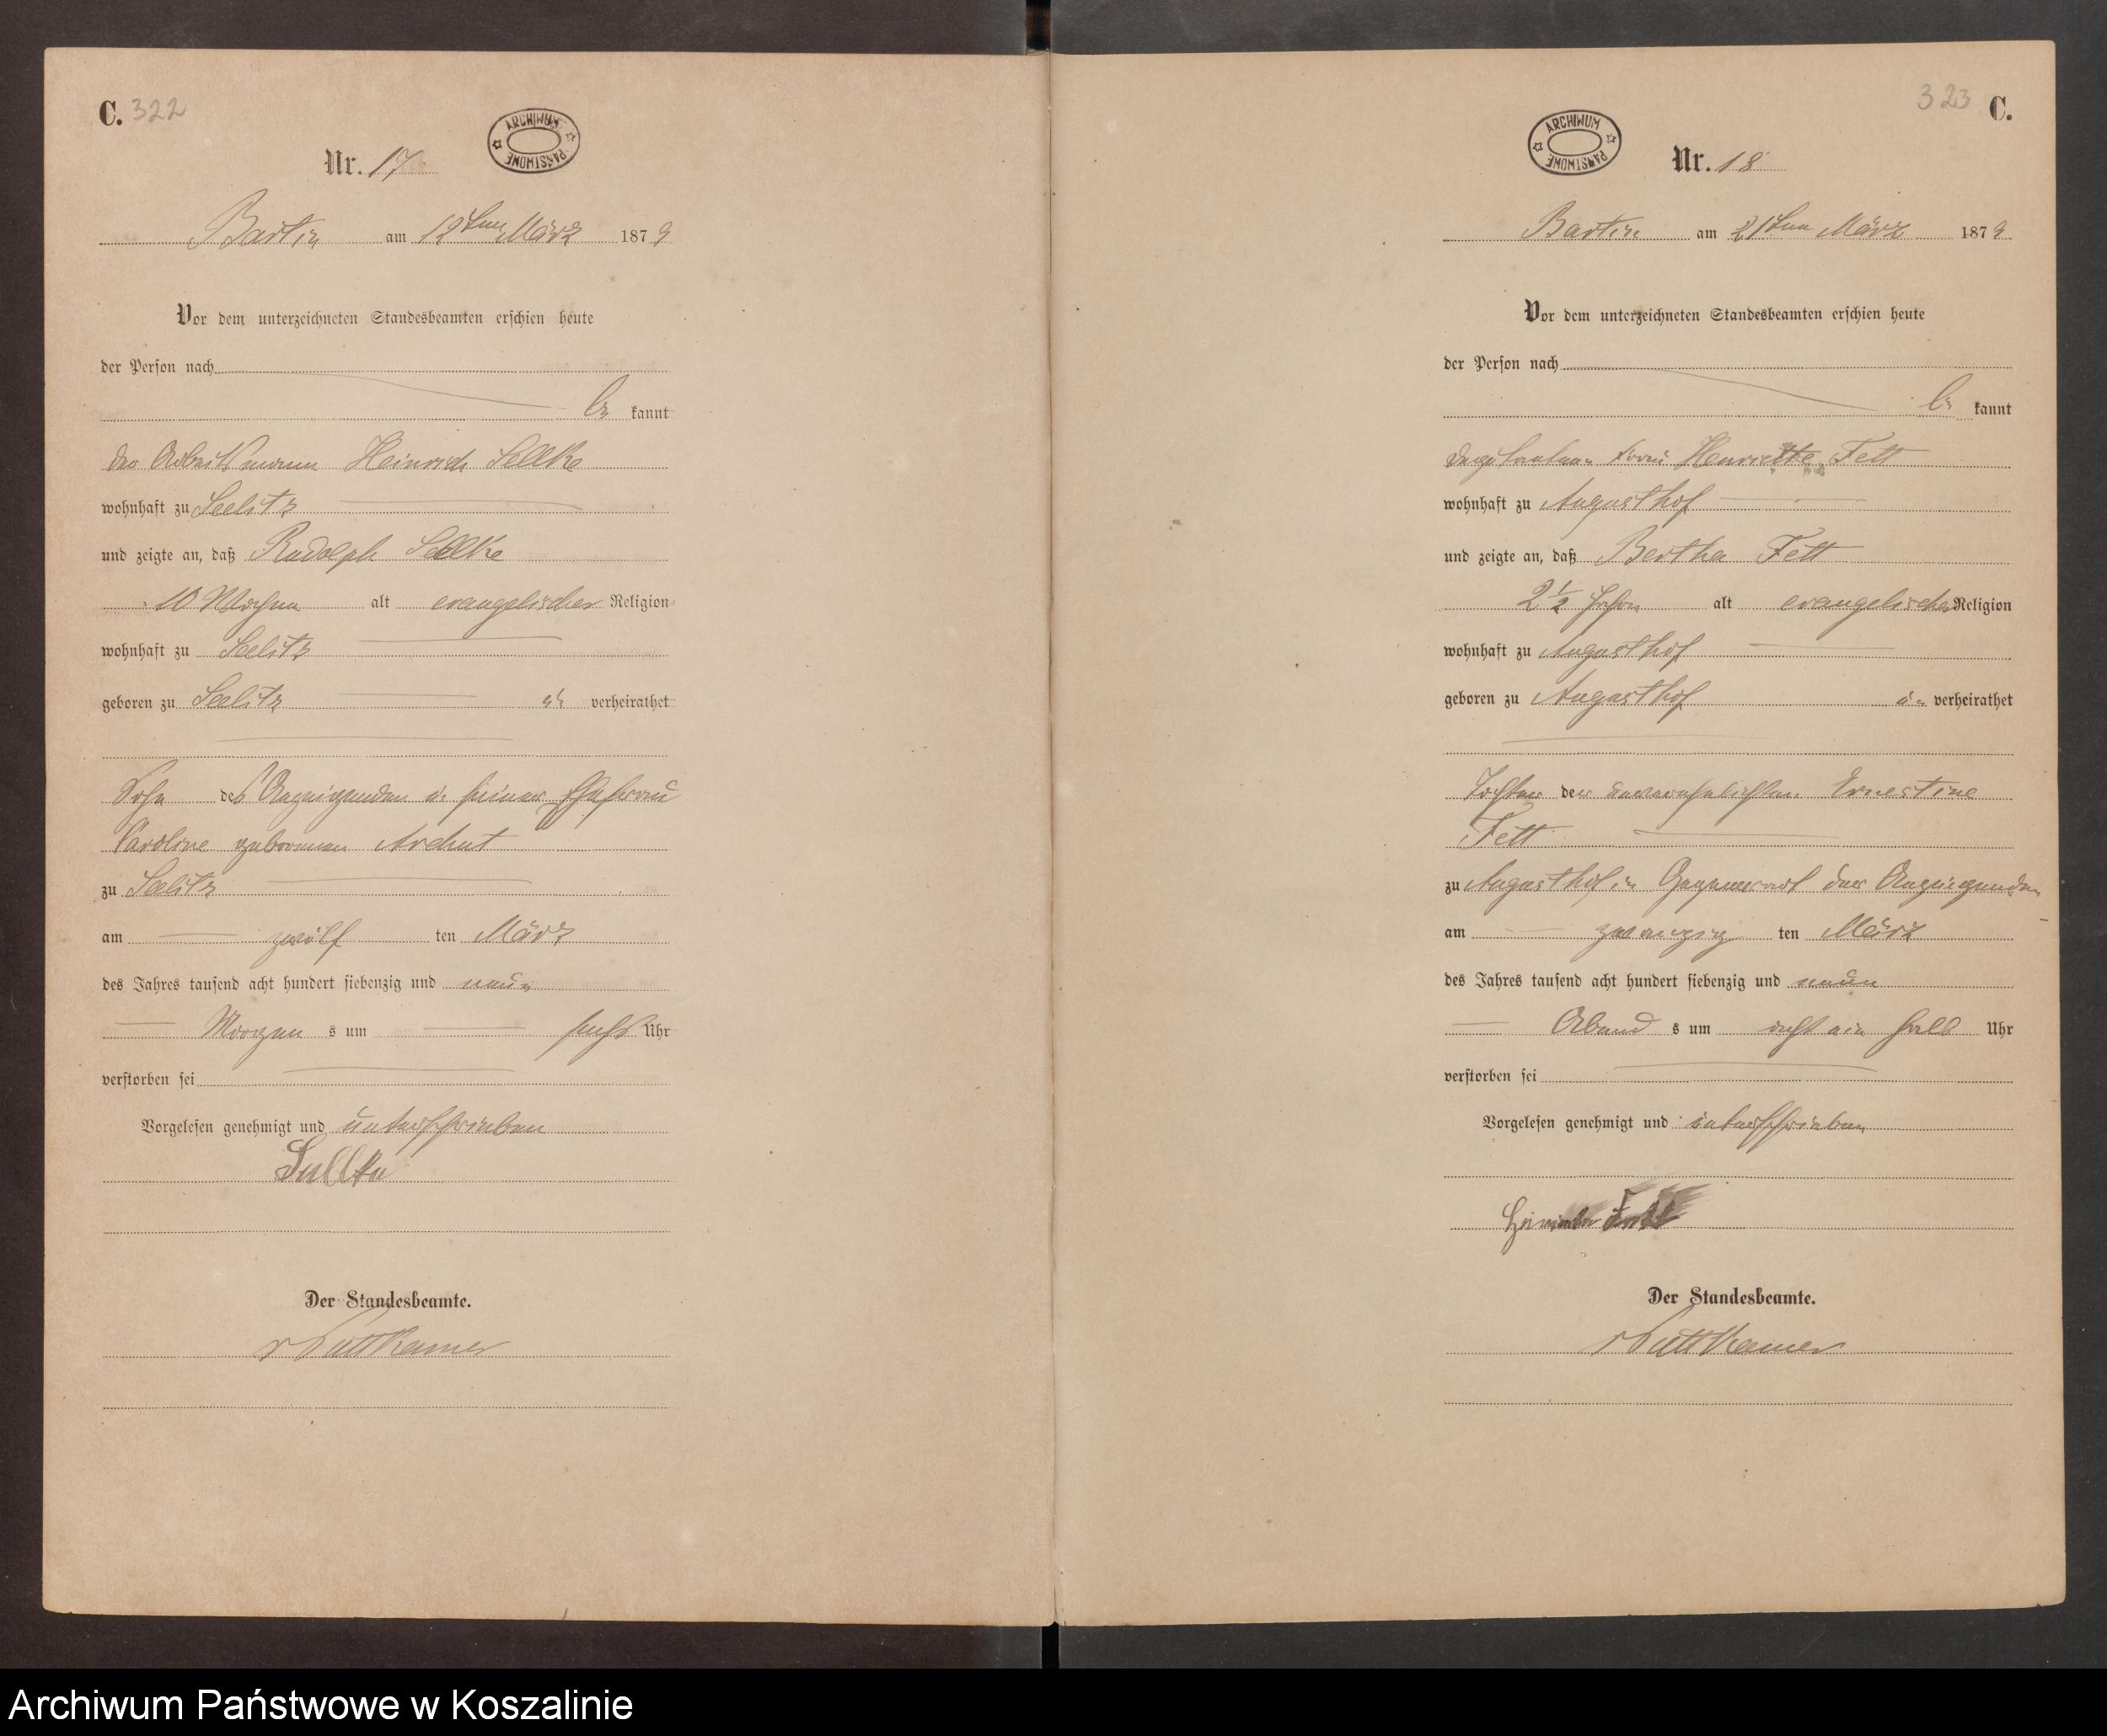 C. 322
ARCHIWUM PAŃSTWOWE
Nr. 17
Bartin am 12ten März 1879
Vor dem unterzeichneten Standesbeamten erschien heute
der Person nach
be kannt
der Arbeitsmann Heinrich Sellke
wohnhaft zu Seelitz
und zeigte an, daß Rudolph Sellke
10 Wochen alt evangelischer Religion
wohnhaft zu Seelitz
geboren zu Seelitz un verheirathet
Sohn des Anzeigenden u. seiner Ehefrau
Caroline geborenen Archut
zu Seelitz
am zwölf ten März
des Jahres tausend acht hundert siebenzig und neun
Morgen s um sechs Uhr
verstorben sei
Vorgelesen genehmigt und unterschrieben
Sellke
Der Standesbeamte.
v Puttkamer
323 C.
ARCHIWUM PAŃSTWOWE
Nr. 18
Bartin am 21ten März 1879
Vor dem unterzeichneten Standesbeamten erschien heute
der Person nach
be kannt
Frau Henriette Fett
wohnhaft zu Augusthof
und zeigte an, daß Bertha Fett
2 1/2 Jahre alt evangelischer Religion
wohnhaft zu Augusthof
geboren zu Augusthof un verheirathet
Tochter der unverehelichten Ernestine
Fett
zu Augusthof in Gegenwart der Anzeigenden
am zwanzig ten März
des Jahres tausend acht hundert siebenzig und neun
Abend s um acht ein halb Uhr
verstorben sei
Vorgelesen genehmigt und unterschrieben
Fett
Der Standesbeamte.
v Puttkamer
Archiwum Państwowe w Koszalinie